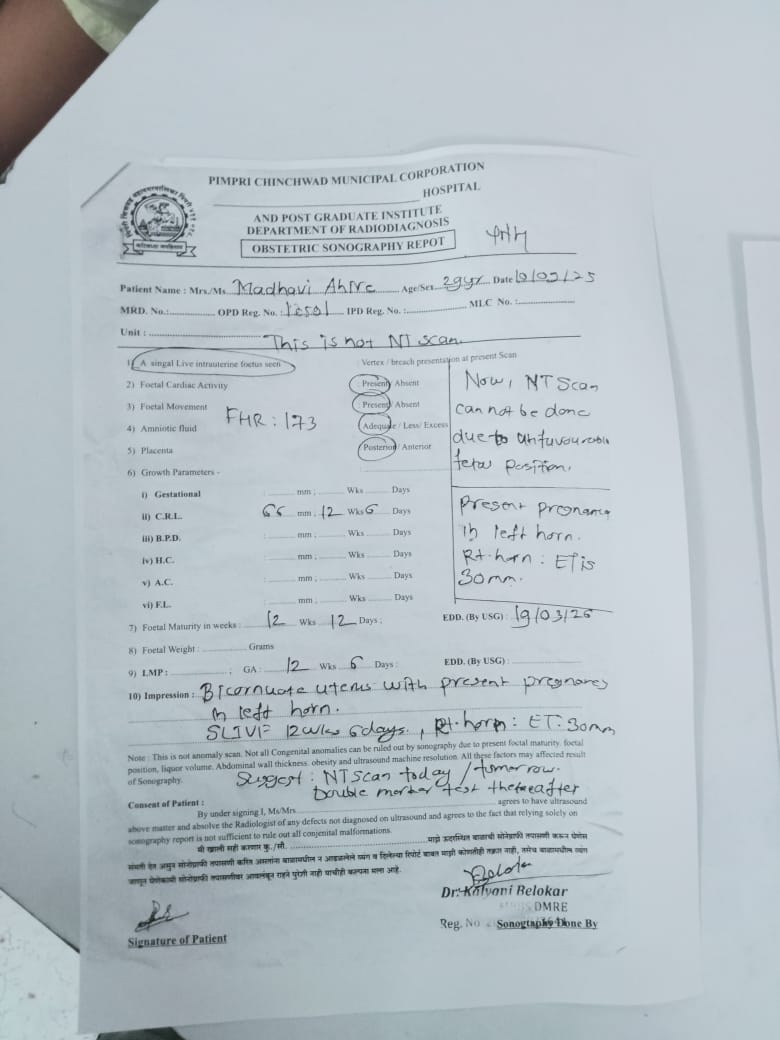 PIMPRI CHINCHWAD MUNICIPAL CORPORATION
HOSPITAL
AND POST GRADUATE INSTITUTE
DEPARTMENT OF RADIODIAGNOSIS
OBSTETRIC SONOGRAPHY REPOT
Patient Name : Mrs./Ms. Madhavi Ahire Age/Sex 29yr Date 10/09/25
MRD. No.: OPD Reg. No. : IPD Reg. No. : MLC No. :
Unit :
This is not NT scan.
1) A singal Live intrauterine foctus seen : Vertex / breach presentation at present Scan
2) Foetal Cardiac Activity : Present/ Absent
3) Foetal Movement : Present/ Absent
FHR : 173
4) Amniotic fluid : Adequate / Less/ Excess
5) Placenta : Posterior/ Anterior
Now, NT Scan
can not be done
due to unfavourable
fetal position.
6) Growth Parameters -
i) Gestational : mm ; Wks Days
ii) C.R.L. : 66 mm ; 12 Wks 6 Days
iii) B.P.D. : mm ; Wks Days
iv) H.C. : mm ; Wks Days
v) A.C. : mm ; Wks Days
vi) F.L. : mm ; Wks Days
Present pregnancy
in left horn.
Rt. horn : ET is
30mm.
7) Foetal Maturity in weeks : 12 Wks 12 Days ; EDD. (By USG) : 19/03/26
8) Foetal Weight : Grams
9) LMP : ; GA : 12 Wks 6 Days : EDD. (By USG) :
10) Impression : Bicornuate uterus with present pregnancy
in left horn.
SLIUF 12 wks 6 days. , Rt. horn : ET : 30mm
Note : This is not anomaly scan. Not all Congenital anomalies can be ruled out by sonography due to present foctal maturity, foctal
position, liquor volume. Abdominal wall thickness, obesity and ultrasound machine resolution. All these factors may affected result
of Sonography.
Suggest : NT Scan today / tomorrow.
Double marker test thereafter
Consent of Patient :
By under signing I, Ms/Mrs agrees to have ultrasound
above matter and absolve the Radiologist of any defects not diagnosed on ultrasound and agrees to the fact that relying solely on
sonography report is not sufficient to rule out all conjenital malformations.
मी खाली सही करणार कु./सौ. माझे उदरस्थित बाळाची सोनोग्राफी तपासणी करून घेणेस
संमती देत असुन सोनोग्राफी तपासणी करित असताना बाळामधील न आढळलेले व्यंग व दिलेल्या रिपोर्ट बाबत माझी कोणतीही तक्रार नाही, तसेच बाळामधील व्यंग
जाणून घेणेकामी सोनोग्राफी तपासणीवर अवलंबून राहने पुरेशी नाही याचीही कल्पना मला आहे.
Signature of Patient
Dr. Kalyani Belokar
DMRE
Reg. No
Sonography Done By